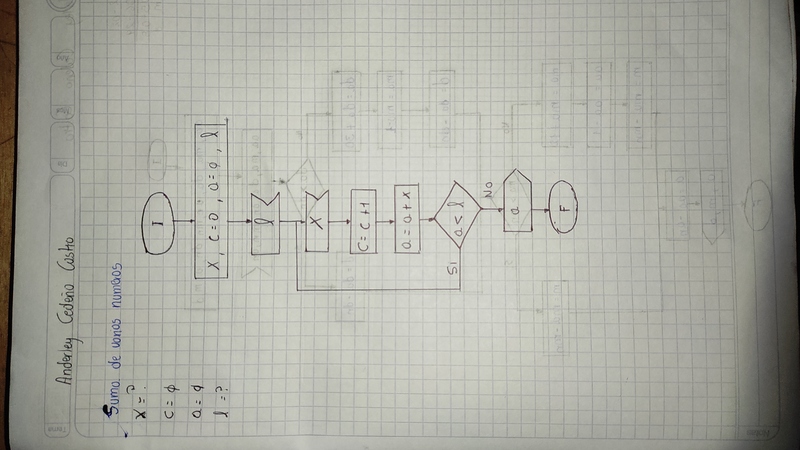 Anderley Cedeño Castro
Suma de varios numeros
X = ?
C = φ
a = φ
l = ?
I
X , C = 0 , a = 0 , l
l
X
C = C + 1
a = a + x
a < l
Si
No
a
F